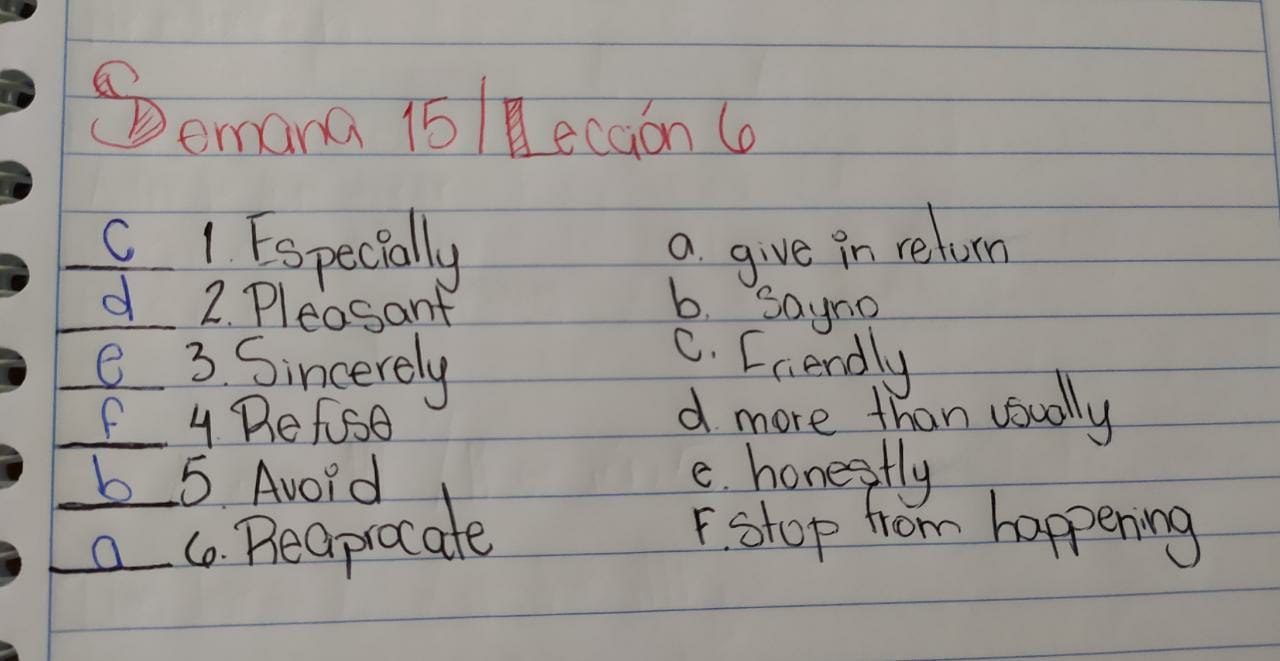 Semana 15/Lección 6
c 1. Especially a. give in return
d 2. Pleasant b. sayno
e 3. Sincerely c. Friendly
f 4 Refuse d. more than usually
b 5. Avoid e. honestly
a 6. Reciprocate F. Stop from happening